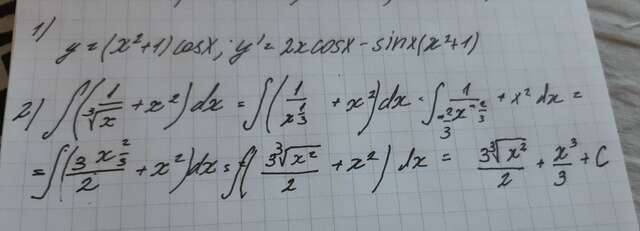 1) y = (x²+1) cosx; y' = 2x cosx - sinx(x²+1)
2) ∫(1/∛x + x²)dx = ∫(1/x^(1/3) + x²)dx = ∫ 1/(-2/3 x^(-2/3)) + x² dx =
= ∫(3x^(2/3)/2 + x²)dx = ∫(3∛x²/2 + x²) dx = 3∛x²/2 + x³/3 + C